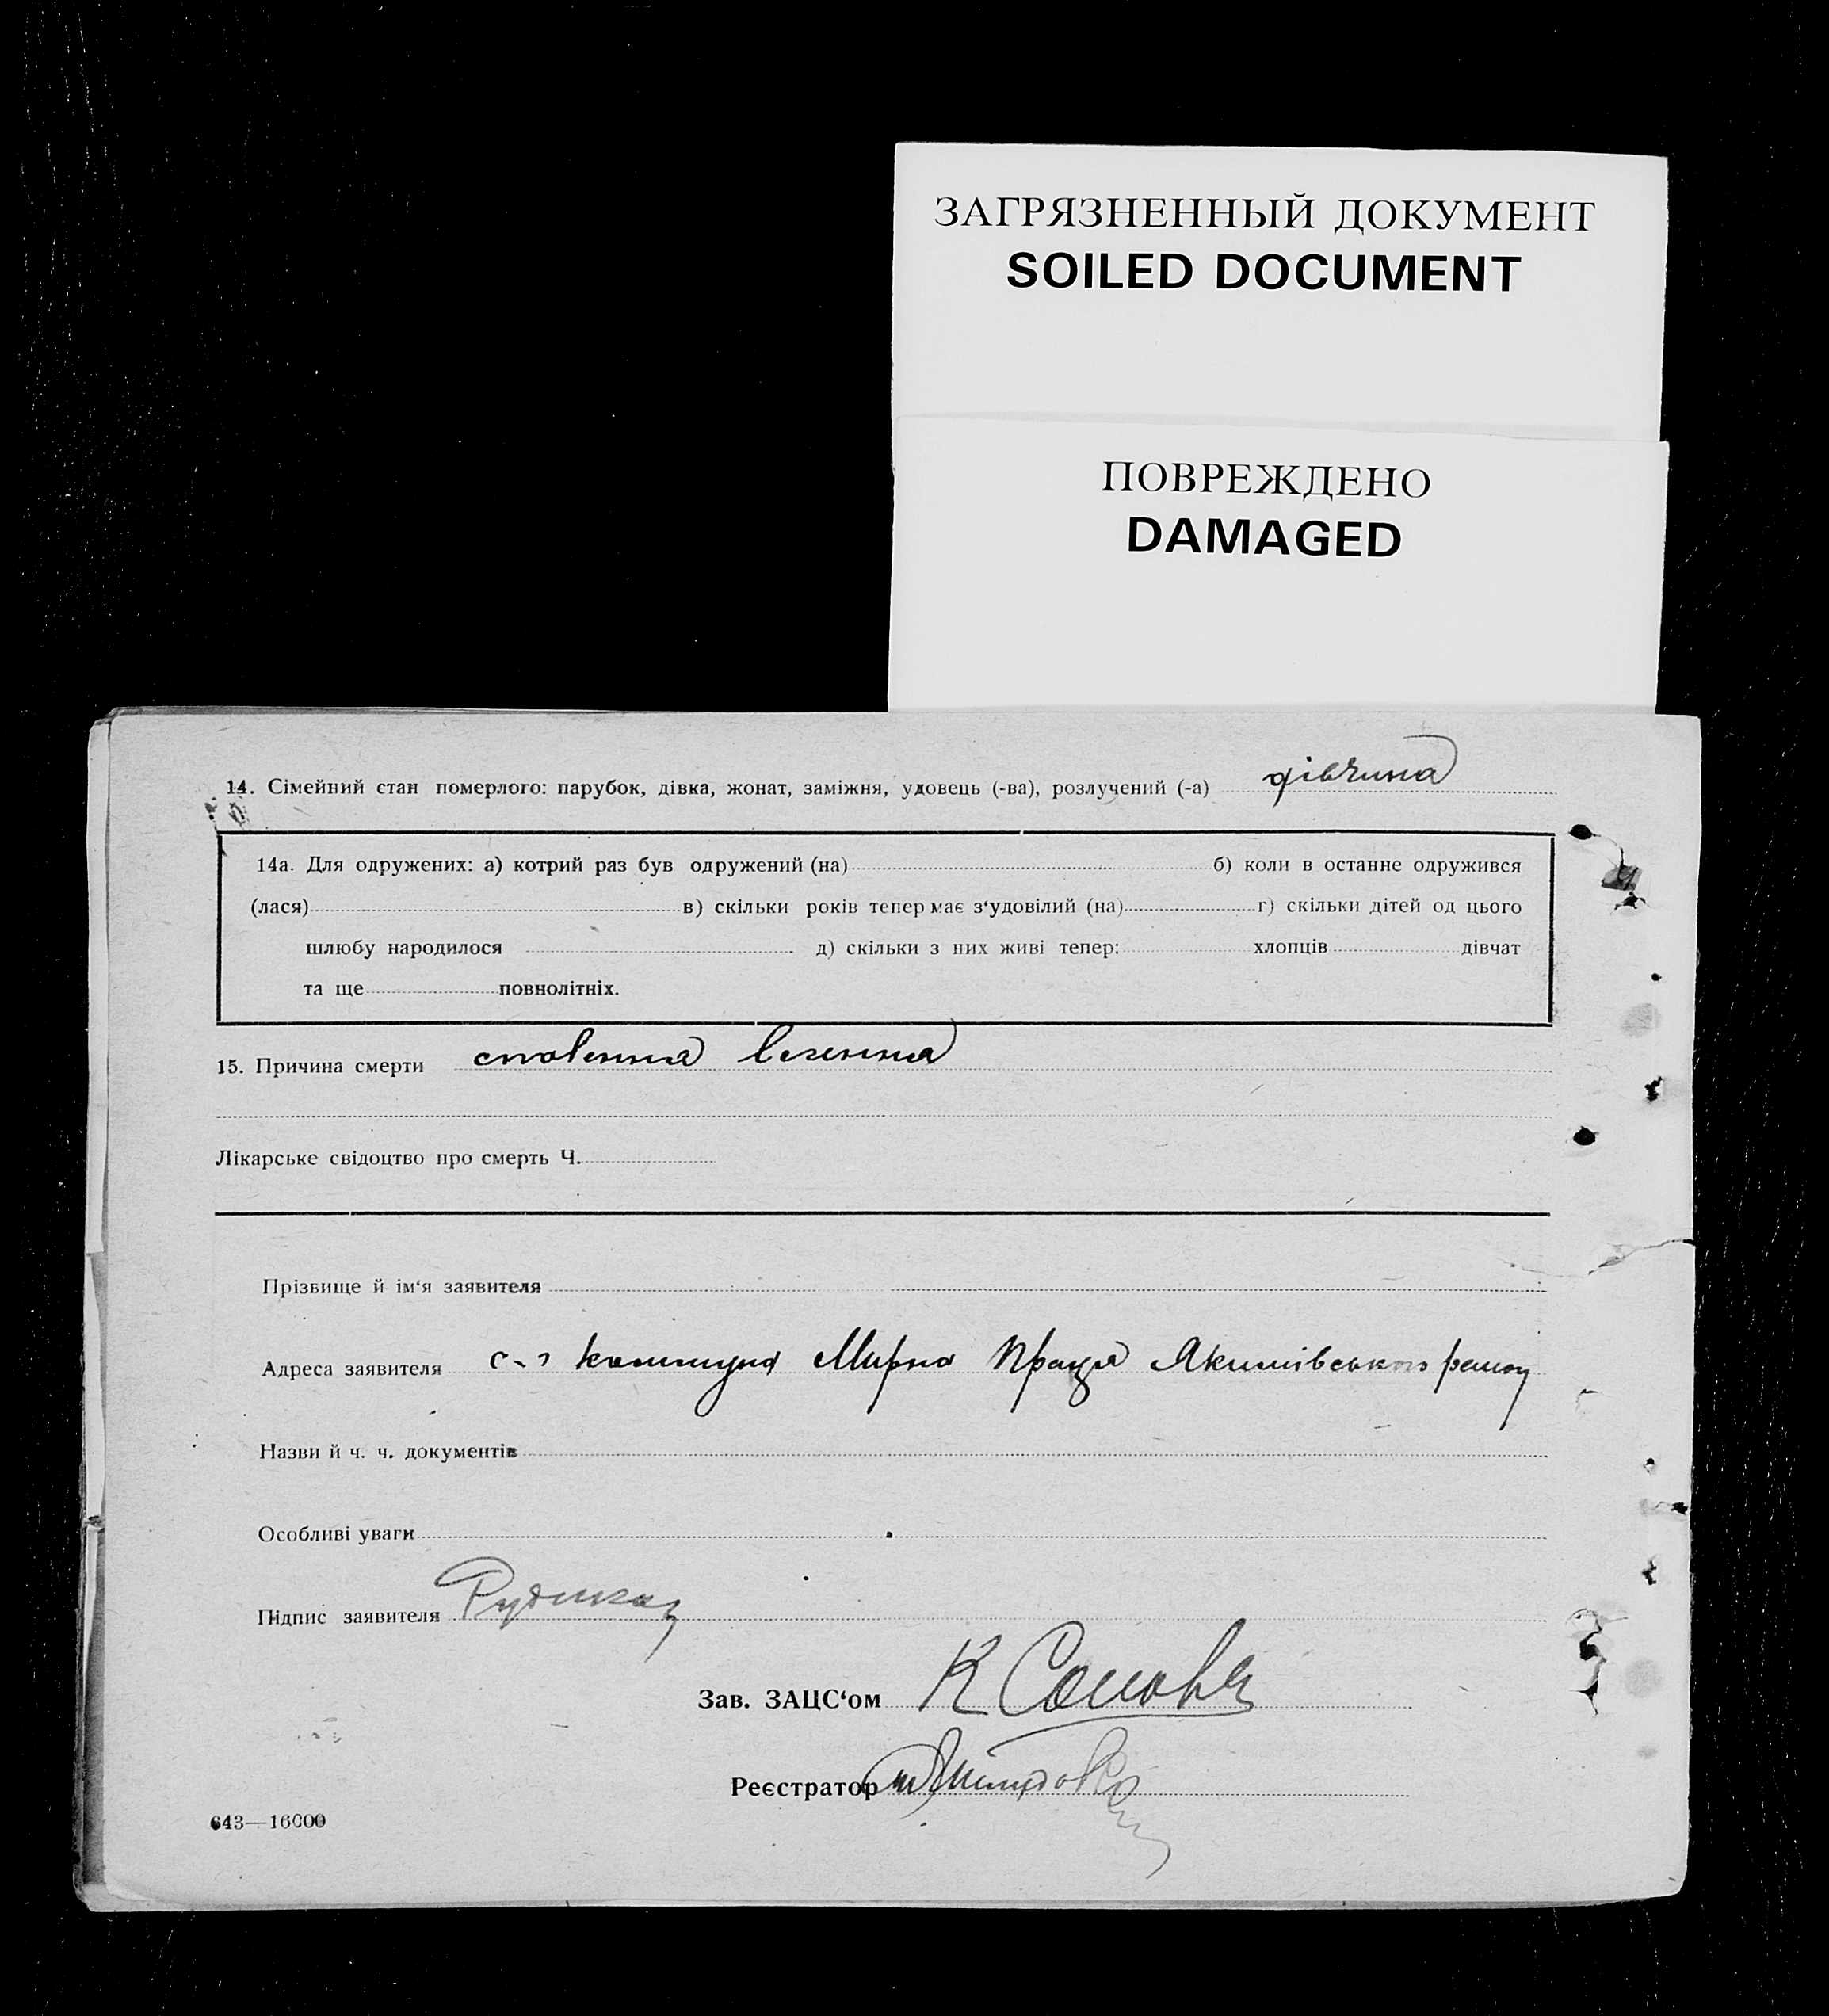 ЗАГРЯЗНЕННЫЙ ДОКУМЕНТ
SOILED DOCUMENT
ПОВРЕЖДЕНО
DAMAGED
14. Сімейний стан померлого: парубок, дівка, жонат, заміжня, удовець (-ва), розлучений (-а) дівчина
14а. Для одружених: а) котрий раз був одружений (на) б) коли в останнє одружився
(лася) в) скільки років тепер має з‘удовілий (на) г) скільки дітей од цього
шлюбу народилося д) скільки з них живі тепер: хлопців дівчат
та ще повнолітніх.
15. Причина смерти
Лікарське свідоцтво про смерть Ч.
Прізвище й ім‘я заявителя
Адреса заявителя Мирна Праця Якимівського району
Назви й ч. ч. документів
Особливі уваги
Підпис заявителя
Зав. ЗАЦС‘ом К
Реєстратор
643—16000